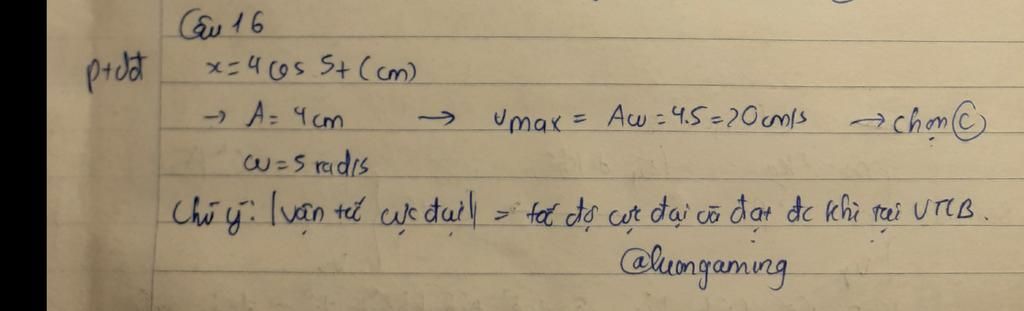 Câu 16
ptdđ x = 4 cos 5t (cm)
→ A = 4cm → vmax = Aω = 4.5 = 20 cm/s → chọn C
ω = 5 rad/s
Chú ý: |vận tốc cực đại| = tốc độ cực đại và đạt đc khi tại VTCB.
@luongaming